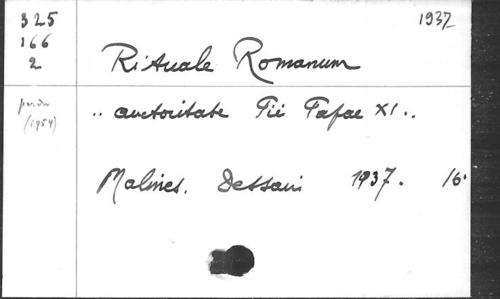 325
166
2
1937
Rituale Romanum
perdu
(1954)
.. auctoritate Pii Papae XI ..
Malines. Dessain 1937. 16°